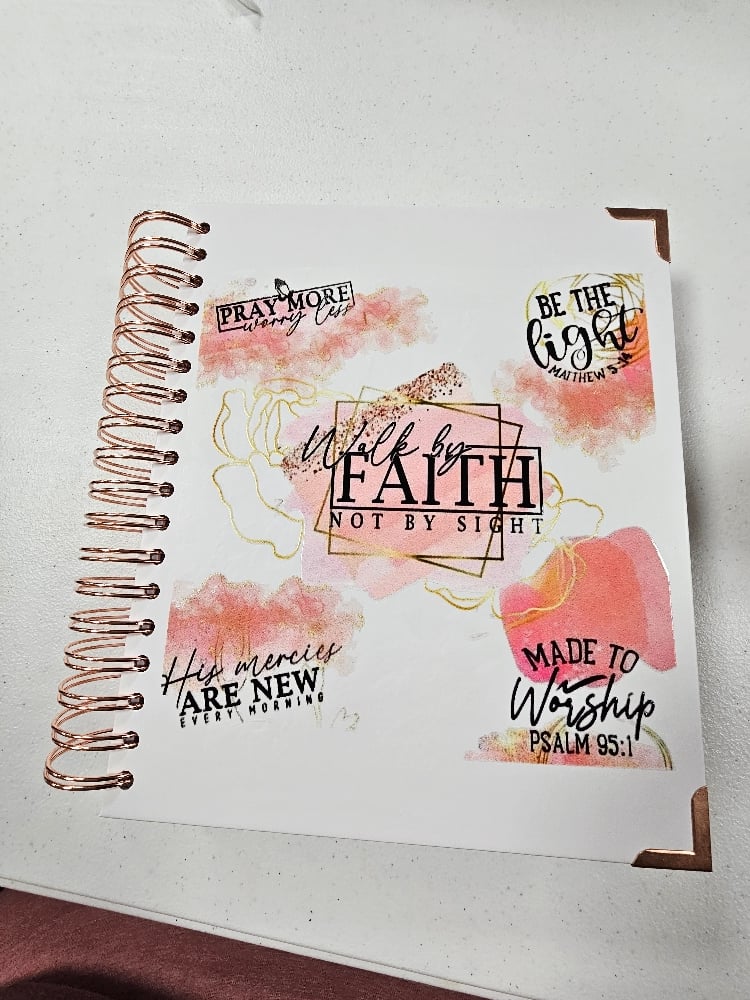 PRAY MORE
worry less
BE THE
light
MATTHEW 5:14
Walk by
FAITH
NOT BY SIGHT
His mercies
ARE NEW
EVERY MORNING
MADE TO
Worship
PSALM 95:1